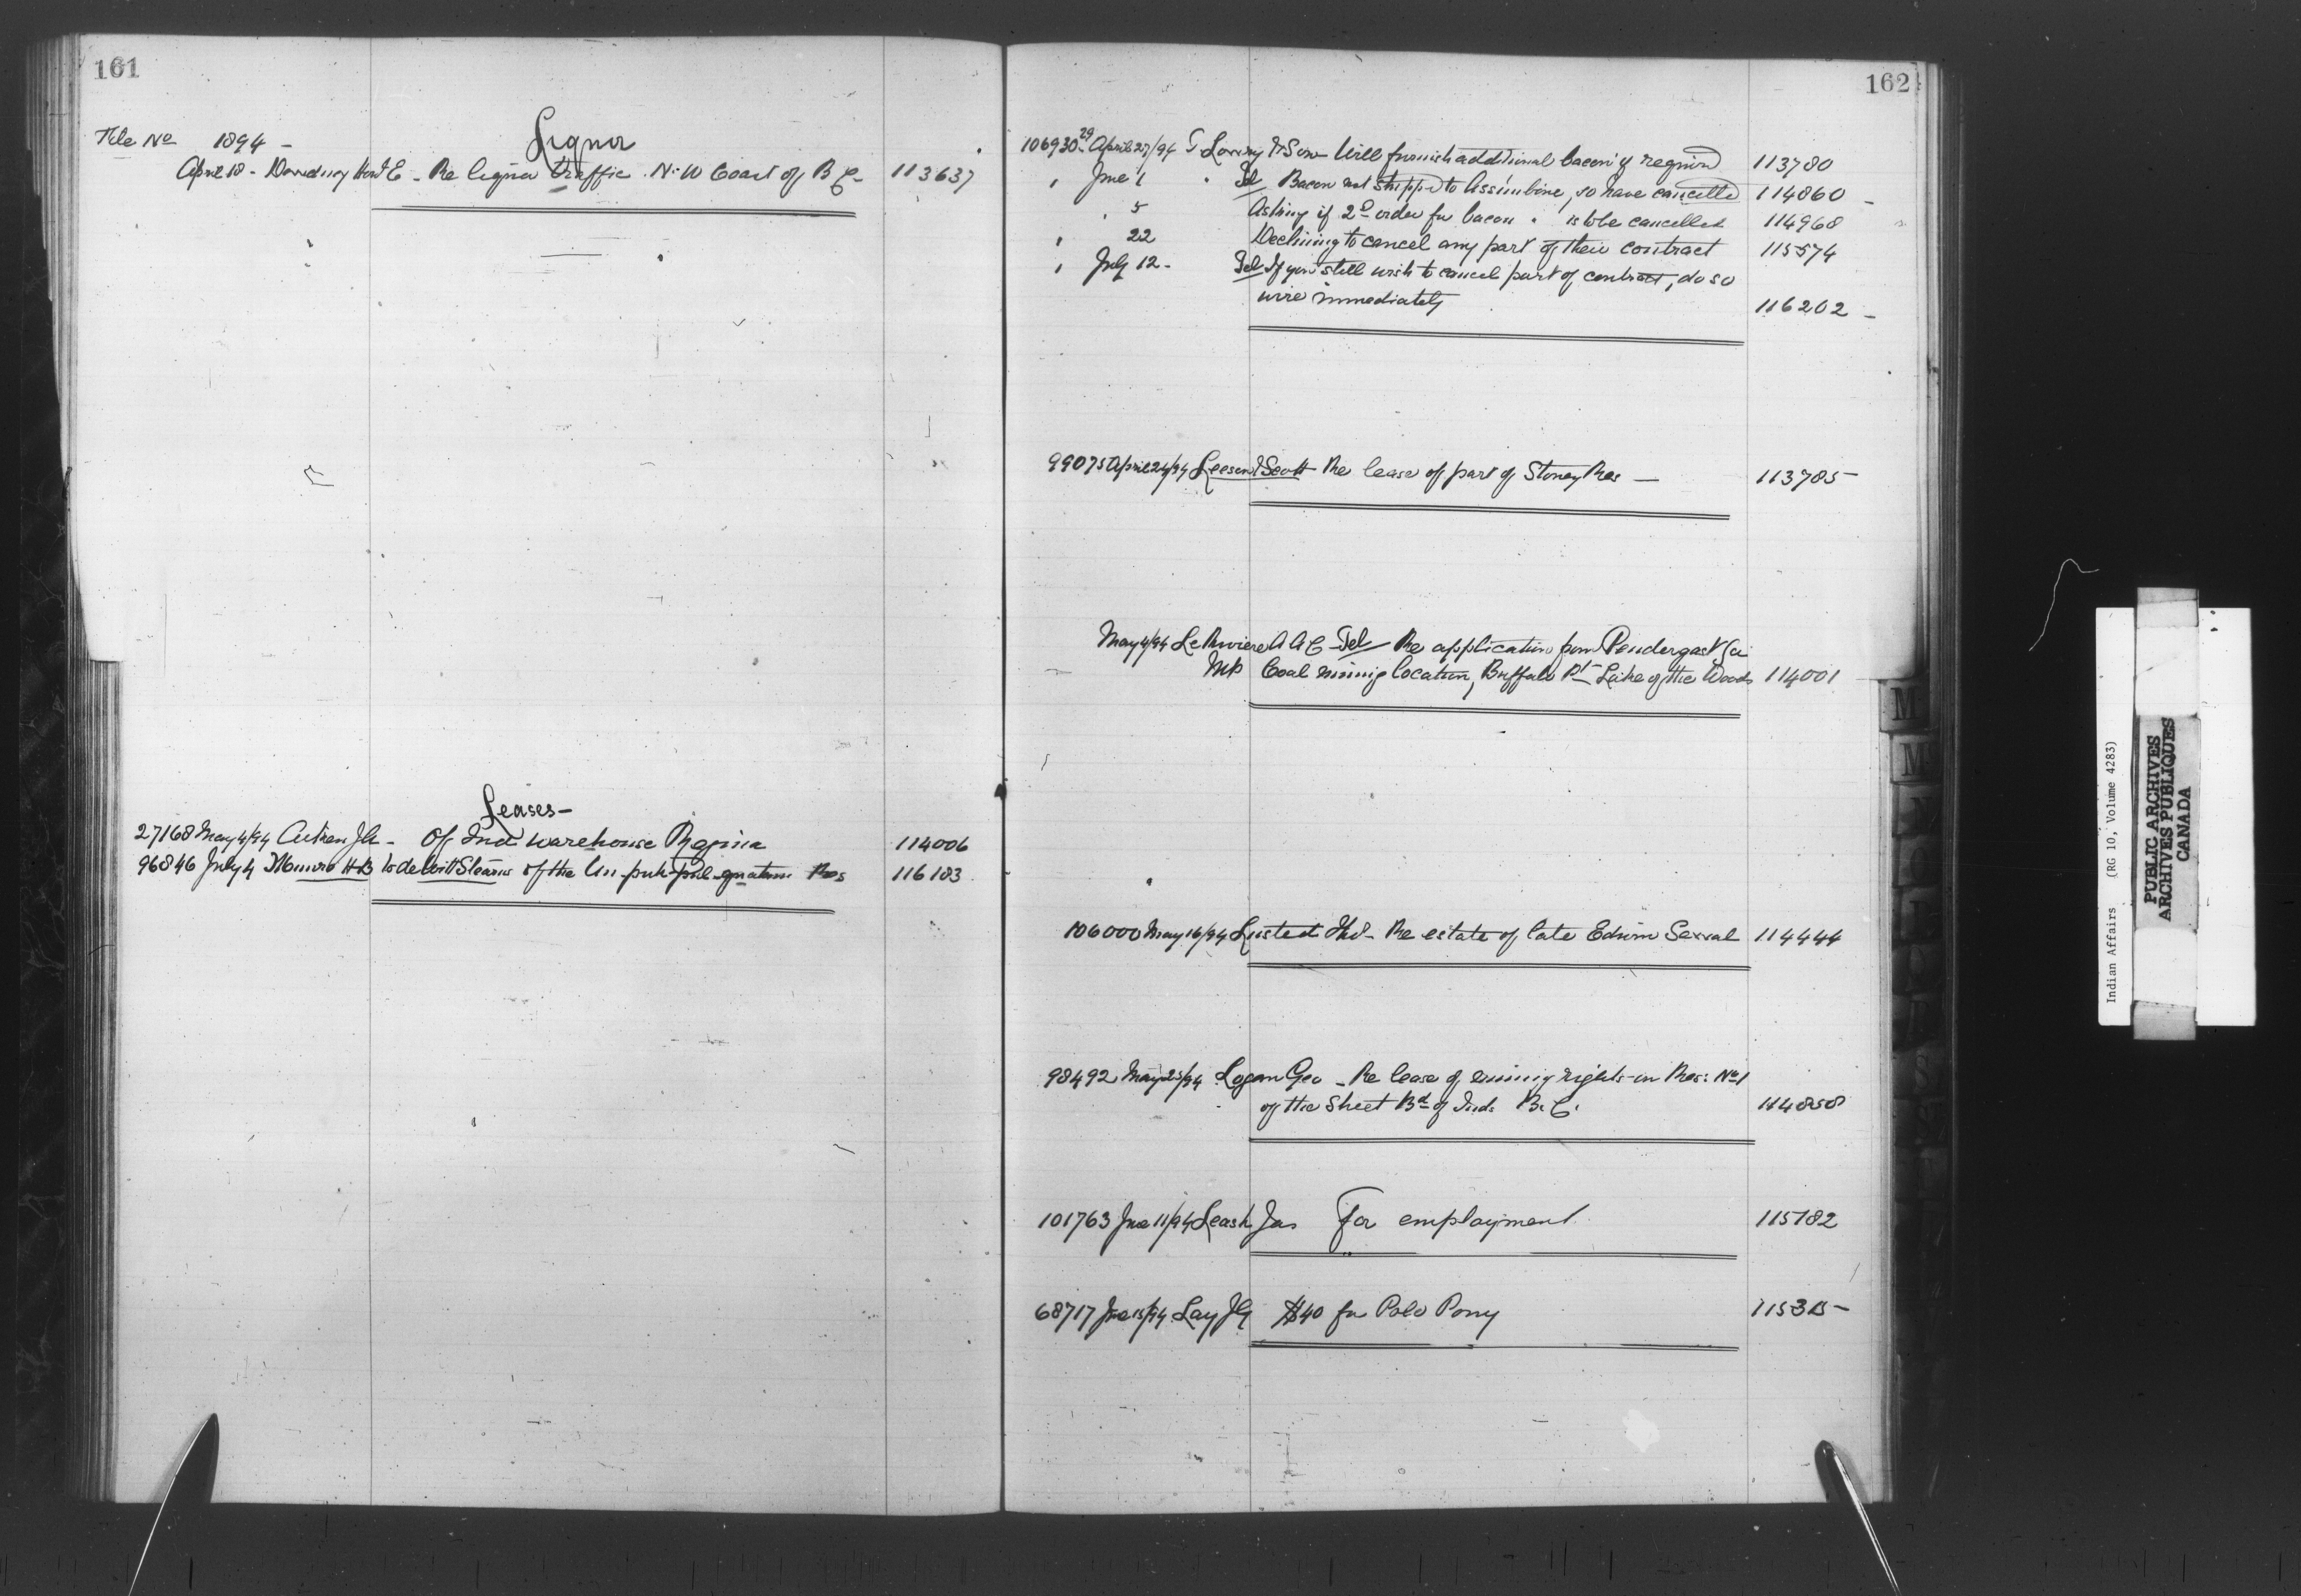 161
File No 1894 -
Liquor
April 18 - Dewdney Hon E - Re liquor traffic N.W Coast of B C - 113637
Leases -
27168 May 4/94 J - Of Ind warehouse Regina 114006
96846 July 4 Munro H B to deWitt Stearns of the Res 116183
162
106930 29 April 27/94 Lowry & Son - Will furnish additional bacon if required 113780
" June 1 " Tel Bacon not shipped to Assiniboine, so have cancelled 114860 -
" 5 Asking if 2nd order for bacon is to be cancelled 114968
" 22 Declining to cancel any part of their contract 115574
" July 12 - Tel If you still wish to cancel part of contract, do so
wire immediately 116202 -
99075 April 24/94 Leeson & Scott Re lease of part of Stoney Res - 113785 -
May 4/94 LaRiviere A A C - Tel Re application from Pendergast for
MP Coal mining location, Buffalo Pt - Lake of the Woods 114001
106000 May 16/94 Lusted Thos - Re estate of late Edwin 114444
98492 May 25/94 Logan Geo - Re lease of mining rights on Res: No 1
of the Bd of Inds B. C. 114858
101763 June 11/94 Leask Jas For employment 115182
68717 June 15/94 Lay J G $40 for Polo Pony
M
M
Indian Affairs (RG 10, Volume 4283)
PUBLIC ARCHIVES
ARCHIVES PUBLIQUES
CANADA